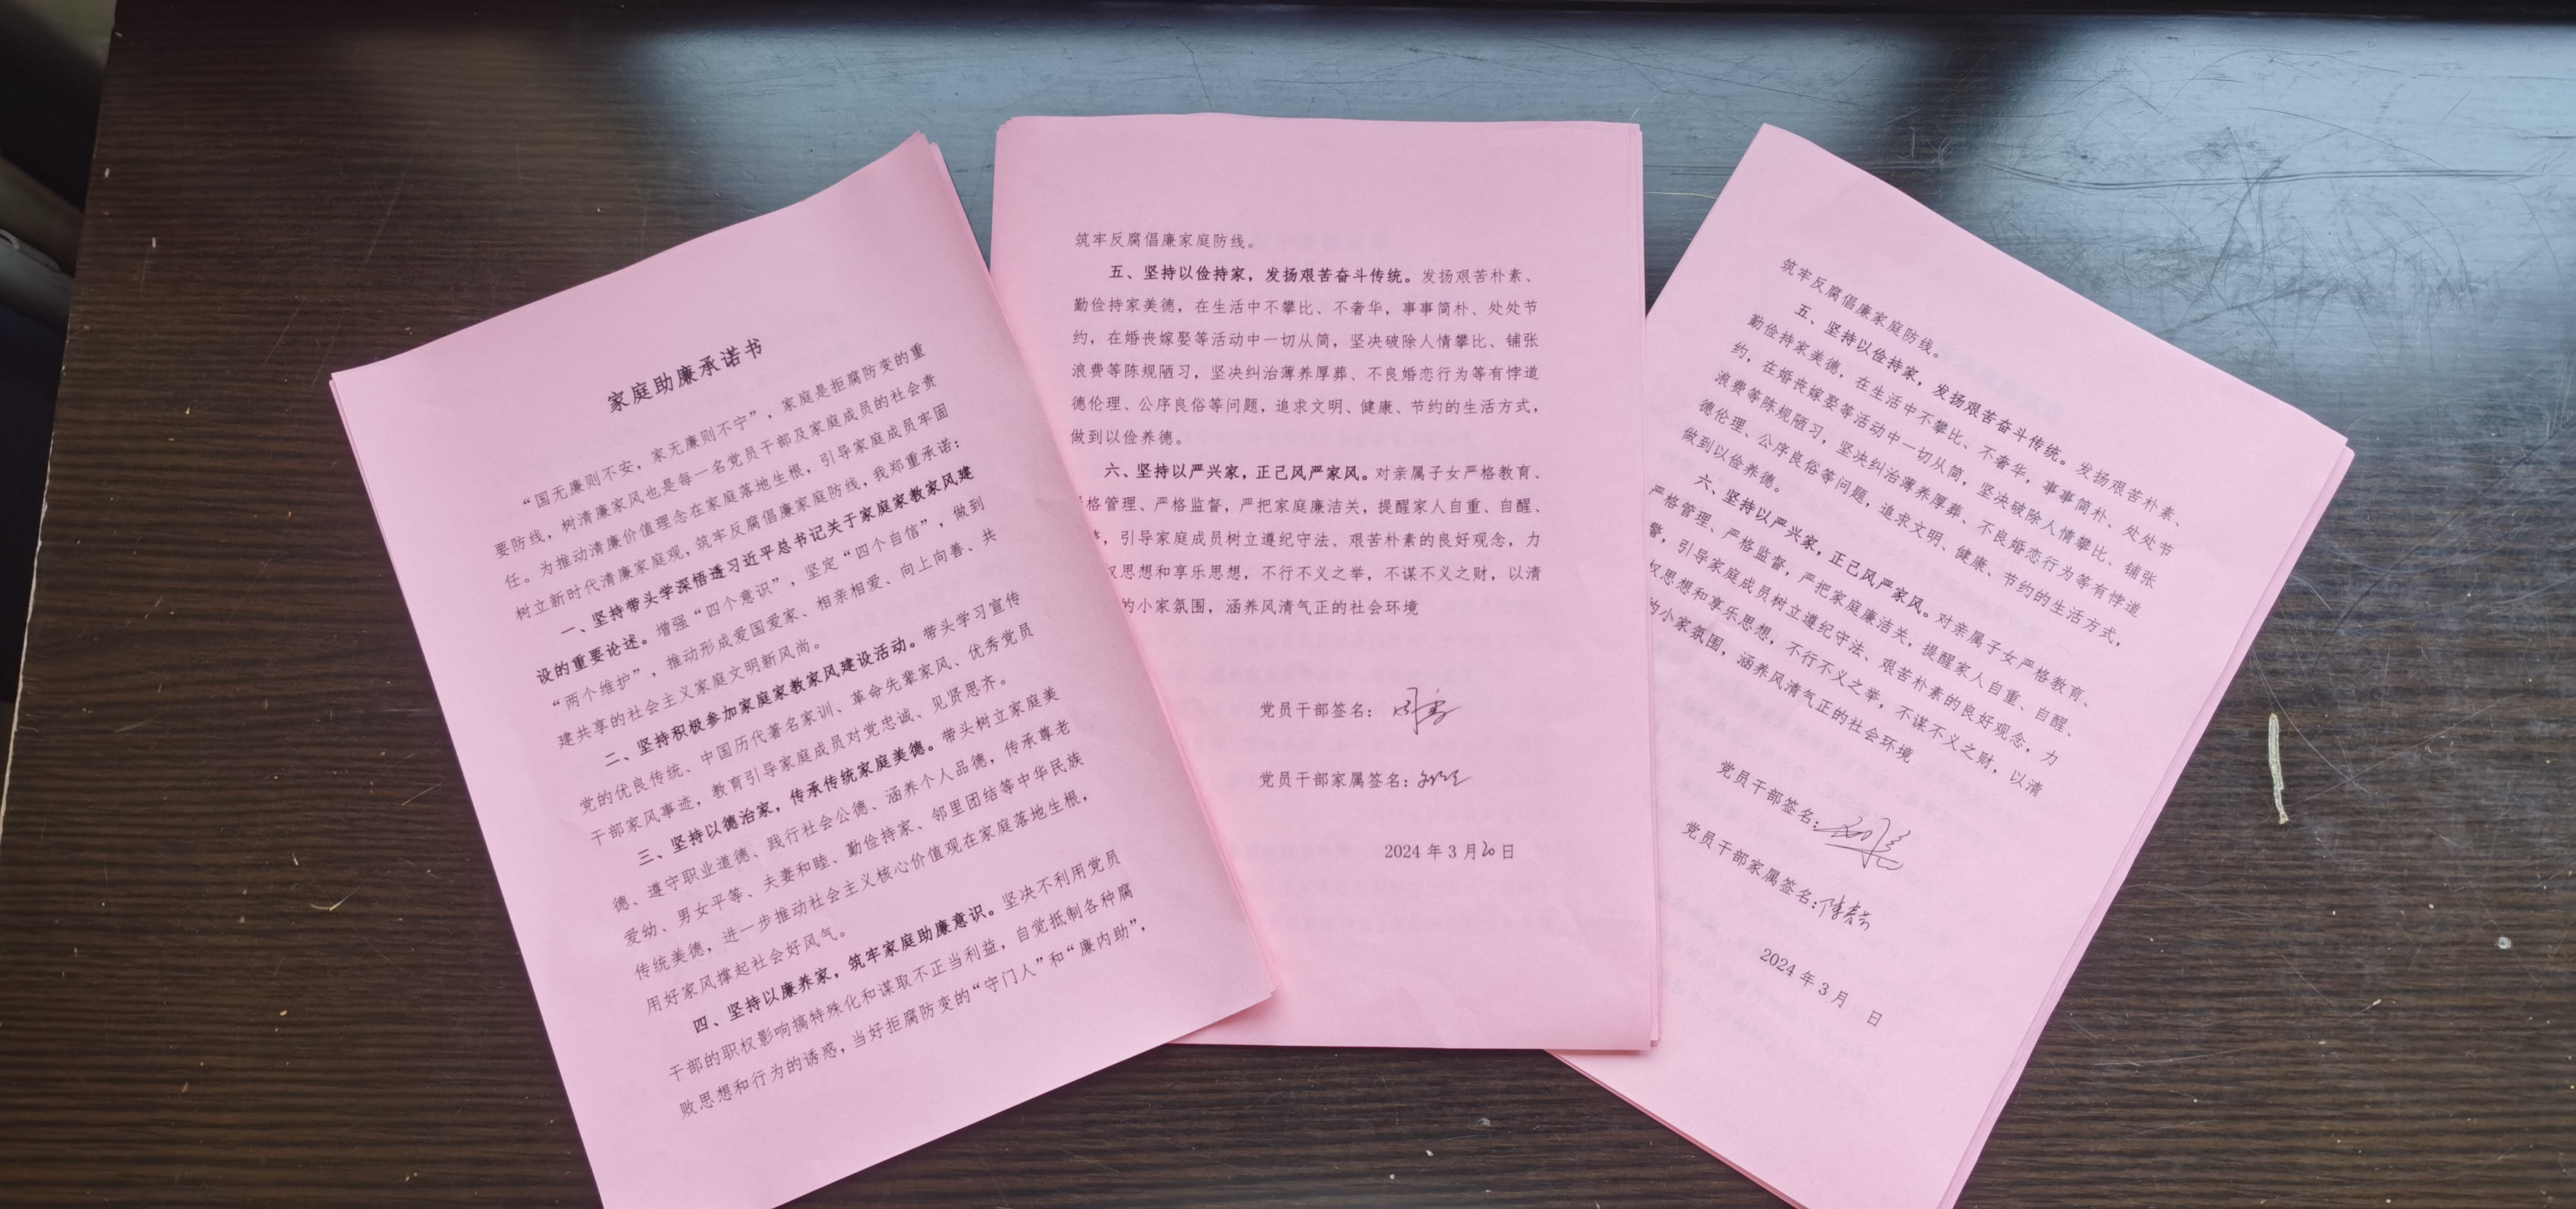 家庭助廉承诺书
“国无廉则不安，家无廉则不宁”，家庭是拒腐防变的重
要防线，树清廉家风也是每一名党员干部及家庭成员的社会责
任。为推动清廉价值理念在家庭落地生根，引导家庭成员牢固
树立新时代清廉家庭观，筑牢反腐倡廉家庭防线，我郑重承诺：
一、坚持带头学深悟透习近平总书记关于家庭家教家风建
设的重要论述。增强“四个意识”，坚定“四个自信”，做到
“两个维护”，推动形成爱国爱家、相亲相爱、向上向善、共
建共享的社会主义家庭文明新风尚。
二、坚持积极参加家庭家教家风建设活动。带头学习宣传
党的优良传统、中国历代著名家训、革命先辈家风、优秀党员
干部家风事迹，教育引导家庭成员对党忠诚、见贤思齐。
三、坚持以德治家，传承传统家庭美德。带头树立家庭美
德、遵守职业道德、践行社会公德、涵养个人品德，传承尊老
爱幼、男女平等、夫妻和睦、勤俭持家、邻里团结等中华民族
传统美德，进一步推动社会主义核心价值观在家庭落地生根，
用好家风撑起社会好风气。
四、坚持以廉养家，筑牢家庭助廉意识。坚决不利用党员
干部的职权影响搞特殊化和谋取不正当利益，自觉抵制各种腐
败思想和行为的诱惑，当好拒腐防变的“守门人”和“廉内助”，
筑牢反腐倡廉家庭防线。
五、坚持以俭持家，发扬艰苦奋斗传统。发扬艰苦朴素、
勤俭持家美德，在生活中不攀比、不奢华，事事简朴、处处节
约，在婚丧嫁娶等活动中一切从简，坚决破除人情攀比、铺张
浪费等陈规陋习，坚决纠治薄养厚葬、不良婚恋行为等有悖道
德伦理、公序良俗等问题，追求文明、健康、节约的生活方式，
做到以俭养德。
六、坚持以严兴家，正己风严家风。对亲属子女严格教育、
格管理、严格监督，严把家庭廉洁关，提醒家人自重、自醒、
，引导家庭成员树立遵纪守法、艰苦朴素的良好观念，力
权思想和享乐思想，不行不义之举，不谋不义之财，以清
的小家氛围，涵养风清气正的社会环境
党员干部签名：
党员干部家属签名：
2024 年 3 月 20 日
筑牢反腐倡廉家庭防线。
五、坚持以俭持家，发扬艰苦奋斗传统。发扬艰苦朴素、
勤俭持家美德，在生活中不攀比、不奢华，事事简朴、处处节
约，在婚丧嫁娶等活动中一切从简，坚决破除人情攀比、铺张
浪费等陈规陋习，坚决纠治薄养厚葬、不良婚恋行为等有悖道
德伦理、公序良俗等问题，追求文明、健康、节约的生活方式，
做到以俭养德。
六、坚持以严兴家，正己风严家风。对亲属子女严格教育、
严格管理、严格监督，严把家庭廉洁关，提醒家人自重、自醒、
警，引导家庭成员树立遵纪守法、艰苦朴素的良好观念，力
权思想和享乐思想，不行不义之举，不谋不义之财，以清
的小家氛围，涵养风清气正的社会环境
党员干部签名：
党员干部家属签名：
2024 年 3 月 日